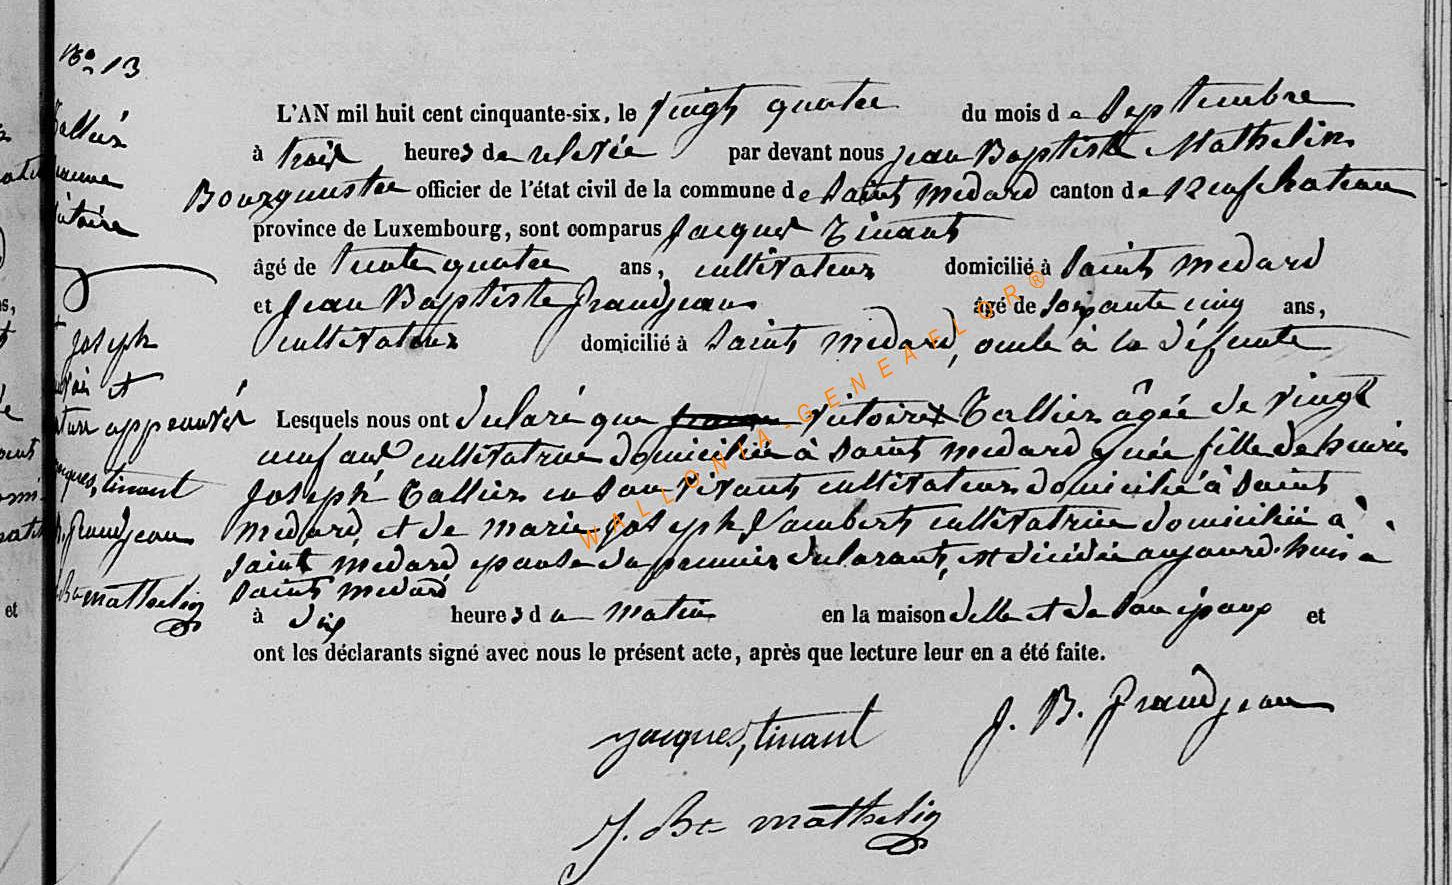 No 13
L'AN mil huit cent cinquante-six, le vingt quatre du mois de Septembre
à trois heures de relevée par devant nous Jean Baptiste Mathelin
Bourgmestre officier de l'état civil de la commune de Saint Medard canton de Neufchateau
province de Luxembourg, sont comparus Jacques Tinant
âgé de trente quatre ans, cultivateur domicilié à Saint Medard
et Jean Baptiste Grandjean âgé de soixante cinq ans,
cultivateur domicilié à Saint Medard, oncle à la défunte
Lesquels nous ont déclaré que Victoire Tallier âgée de vingt
neuf ans cultivatrice domiciliée à Saint Medard y née fille de henri
Joseph Tallier en son vivant cultivateur domicilié à Saint
Medard, et de marie Joseph Lambert cultivatrice domiciliée à
Saint Medard epouse du premier déclarant, est décédée aujourd'hui à
Saint Medard
à dix heures du matin en la maison d'elle et de son époux et
ont les déclarants signé avec nous le présent acte, après que lecture leur en a été faite.
jacques, tinant J. B. Grandjean
J. Bte mathelin
Tallier
Joseph
et
approuvés
tinant
Grandjean
mathelin
et
WALLONIA-GENEAELOR®